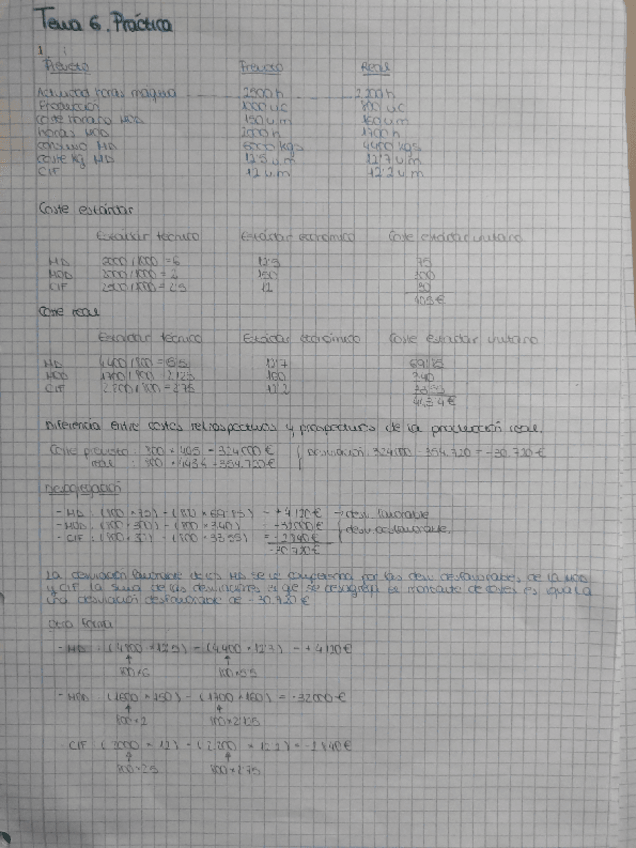 Tema 6. Práctica
1
Previsto Real
Actividad horas máquina 2500 h 2200 h
Producción 1000 uc 800 uc
Coste horario MOD 150 u.m 160 u.m
Horas MOD 2000 h 1700 h
Consumo MD 6000 kgs 4400 kgs
Coste kg MD 12'5 u.m 12'7 u.m
CIF 12 u.m 12'2 u.m
Coste estándar
Estándar técnico Estándar económico Coste estándar unitario
MD 6 12'5 75
MOD 2000/1000 = 2 150 300
CIF 2500/1000 = 2'5 12 30
405 €
Coste real
Estándar técnico Estándar económico Coste estándar unitario
MD 4400/800 = 5'5 12'7
MOD 1700/800 = 2'125 160 340
CIF 2200/800 = 2'75 12'2
€
Diferencia entre costes retrospectivos y prospectivos de la producción real.
Coste previsto: 800 × 405 = 324000 € Desviación: 324000 - 354.720 = -30.720 €
real : 354.720 €
Desagregación
- MD : (800 · 75) - = +4120 € → desv. favorable
- MOD : (800 · 300) - (800 · 340) = -32000 € desv. desfavorable.
- CIF : = -2840 €
-30.720 €
La desviación favorable de los MD se ve compensada por las desv. desfavorables de la MOD
y CIF la suma de las desviaciones es igual a
una desviación desfavorable de -30.720 €
Otra forma
- MD : (4800 × 12'5) - (4.400 × 12'7) = +4120 €
800 × 6 800 × 5'5
- MOD (1600 × 150) - (1700 × 160) = -32000 €
800 × 2 800 × 2'125
- CIF (2000 × 12) - (2200 × 12'2) = -2840 €
800 × 2'5 800 × 2'75